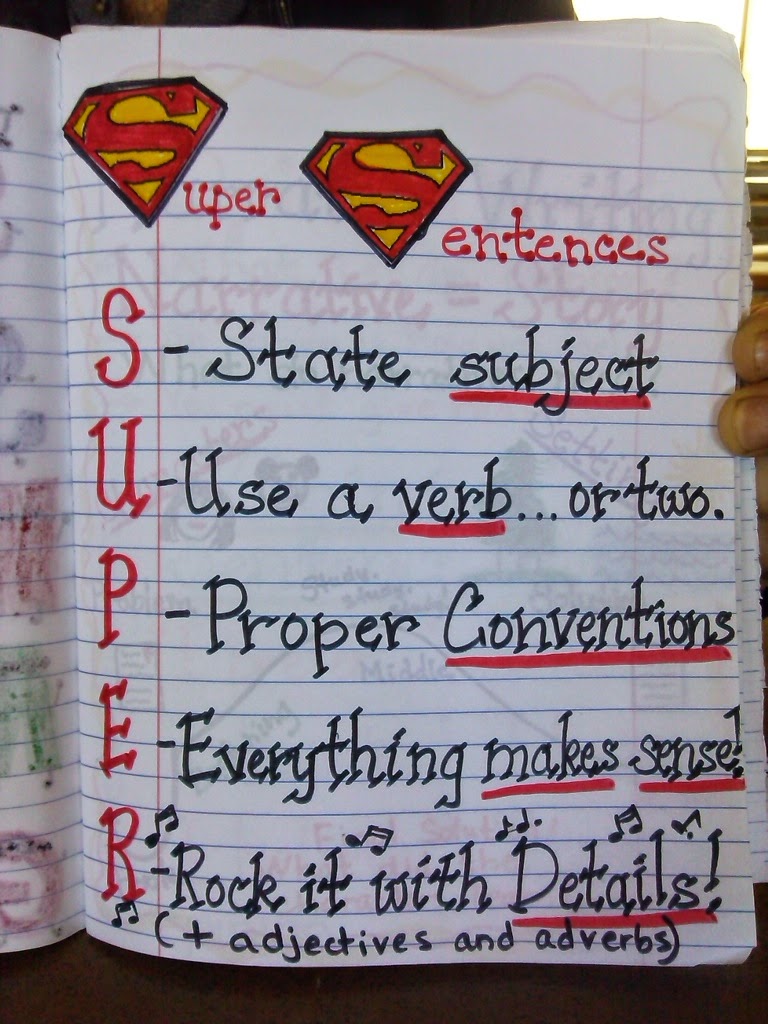 Super Sentences
S - State subject
U - Use a verb... or two.
P - Proper Conventions
E - Everything makes sense!
R - Rock it with Details!
(+ adjectives and adverbs)
Writing
Narrative - Story
Middle